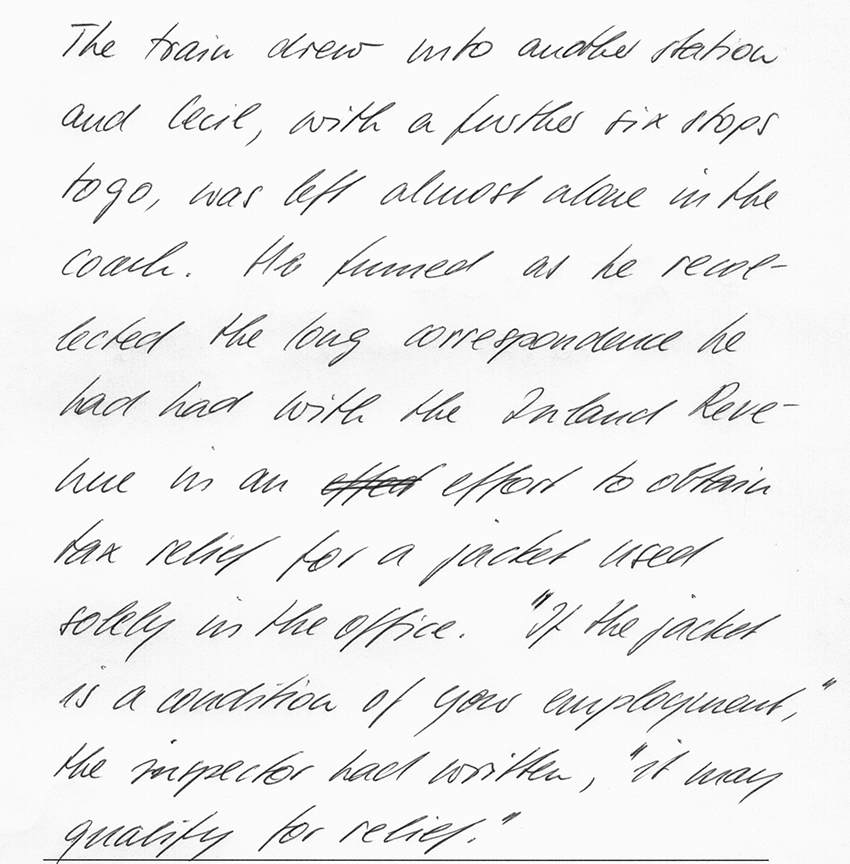 The train drew into another station
and Cecil, with a further six stops
to go, was left almost alone in the
coach. He fumed as he recol-
lected the long correspondence he
had had with the Inland Reve-
nue in an effort to obtain
tax relief for a jacket used
solely in the office. "If the jacket
is a condition of your employment,"
the inspector had written, "it may
qualify for relief."